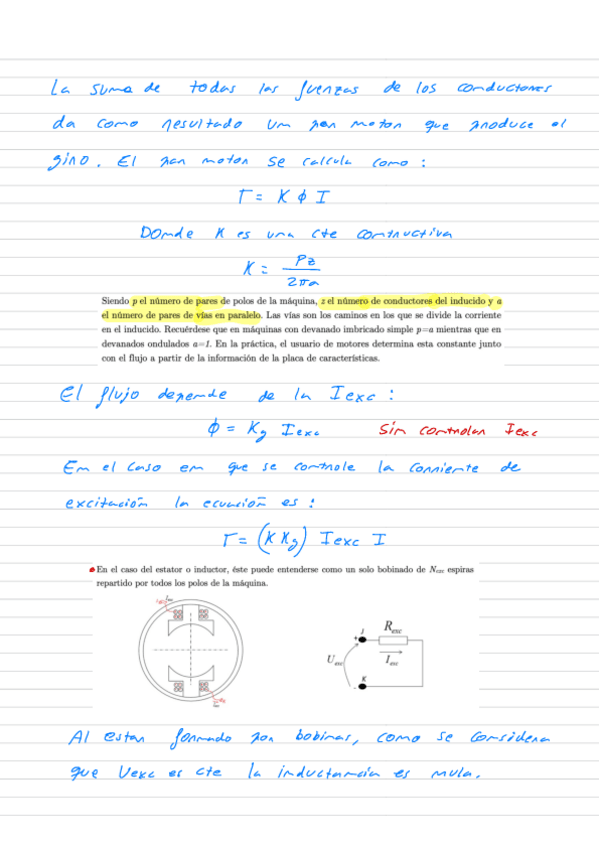 La suma de todas las fuerzas de los conductores
da como resultado un par motor que produce el
giro. El par motor se calcula como:
Γ = K ϕ I
Donde K es una cte constructiva
K = Pz / 2πa
Siendo p el número de pares de polos de la máquina, z el número de conductores del inducido y a
el número de pares de vías en paralelo. Las vías son los caminos en los que se divide la corriente
en el inducido. Recuérdese que en máquinas con devanado imbricado simple p=a mientras que en
devanados ondulados a=1. En la práctica, el usuario de motores determina esta constante junto
con el flujo a partir de la información de la placa de características.
El flujo depende de la Iexc:
ϕ = Kg Iexc Sin controlar Iexc
En el caso en que se controle la corriente de
excitación la ecuación es:
Γ = (K Kg) Iexc I
En el caso del estator o inductor, éste puede entenderse como un solo bobinado de Nexc espiras
repartido por todos los polos de la máquina.
Iexc
J
Rexc
+
Uexc
Iexc
K
-
Al estar formado por bobinas, como se considera
que Uexc es cte la inductancia es nula.